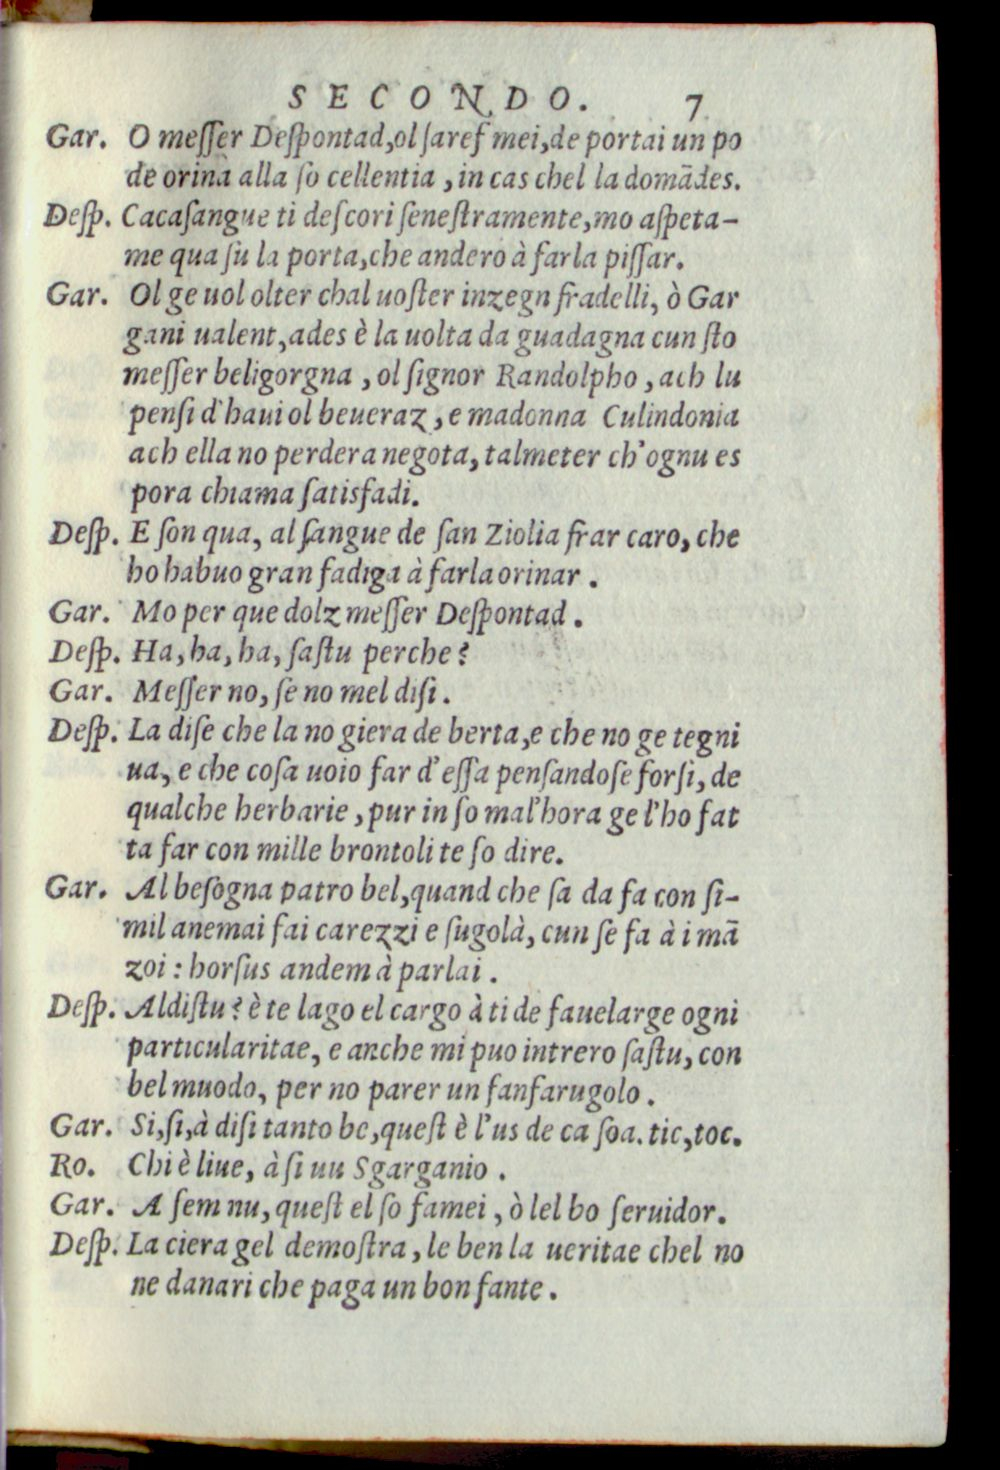 SECONDO. 7
Gar. O messer Despontad, ol saref mei, de portai un po
de orina alla so cellentia, in cas chel la domādes.
Desp. Cacasangue ti descori senestramente, mo aspeta-
me qua sù la porta, che andero à farla pissar.
Gar. Ol ge uol olter chal uoster inzegn fradelli, ò Gar
gani ualent, ades è la uolta da guadagna cun sto
messer beligorgna, ol signor Randolpho, ach lu
pensi d'haui ol beueraz, e madonna Culindonia
ach ella no perdera negota, talmeter ch'ognu es
pora chiama satisfadi.
Desp. E son qua, al sangue de san Ziolia frar caro, che
ho habuo gran fadiga à farla orinar.
Gar. Mo per que dolz messer Despontad.
Desp. Ha, ha, ha, sastu perche?
Gar. Messer no, se no mel disi.
Desp. La dise che la no giera de berta, e che no ge tegni
ua, e che cosa uoio far d'essa pensandose forsi, de
qualche herbarie, pur in so mal'hora ge l'ho fat
ta far con mille brontoli te so dire.
Gar. Al besogna patro bel, quand che sa da fa con si-
mil anemai fai carezzi e sugolà, cun se fa à i mā
zoi: horsus andem à parlai.
Desp. Aldistu? è te lago el cargo à ti de fauelarge ogni
particularitae, e anche mi puo intrero sastu, con
bel muodo, per no parer un fanfarugolo.
Gar. Si, si, à disi tanto be, quest è l'us de ca soa. tic, toc.
Ro. Chi è liue, à si uu Sgarganio.
Gar. A sem nu, quest el so famei, ò lel bo seruidor.
Desp. La ciera gel demostra, le ben la ueritae chel no
ne danari che paga un bon fante.